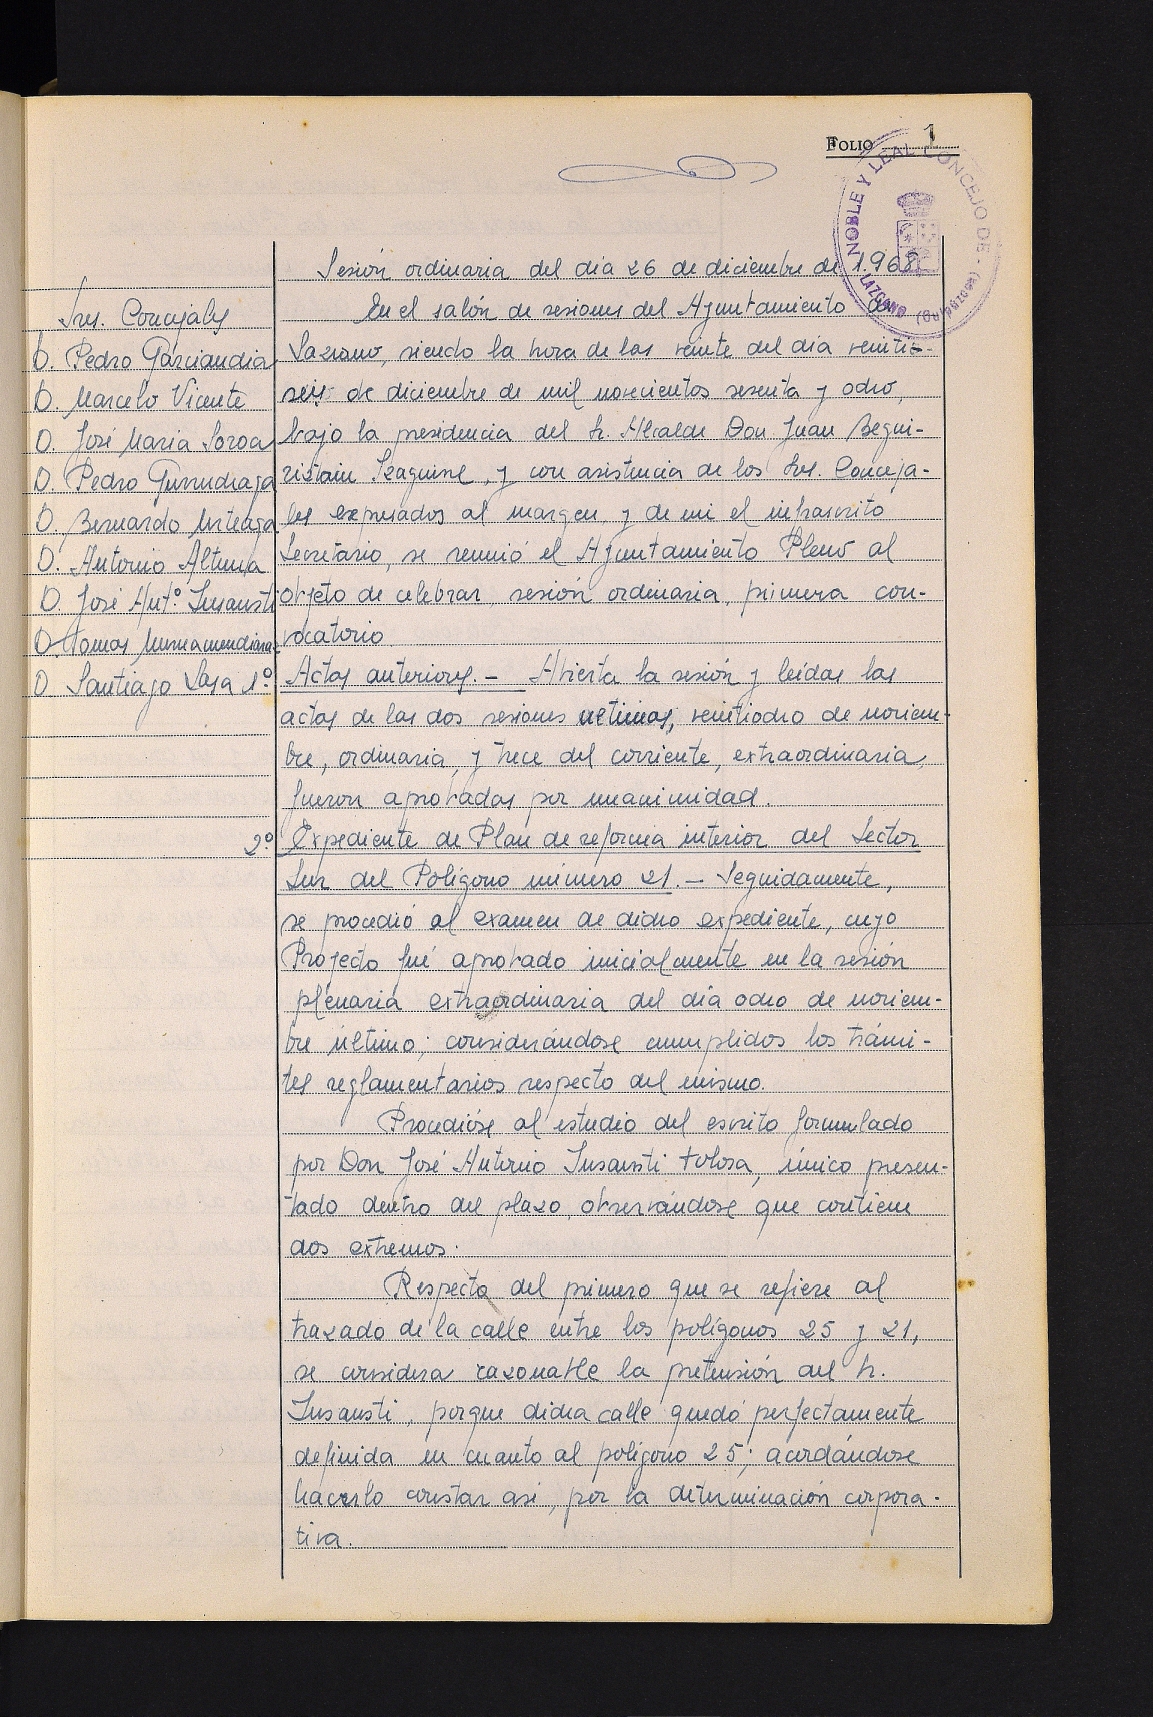 FOLIO 1
NOBLE Y LEAL CONCEJO DE - LAZCANO (Guipúzcoa)
Sesión ordinaria del día 26 de diciembre de 1.968.
Sres. Concejales
D. Pedro Garciandia
D. Marcelo Vicente
D. José Maria Soroa
D. Pedro Gurruchaga
D. Bernardo Urteaga
D. Antonio Altuna
D. José Antº. Insausti
D. Tomas
D. Santiago Lasa
En el salón de sesiones del Ayuntamiento de
Lazcano, siendo la hora de las veinte del día veinti-
seis de diciembre de mil novecientos sesenta y ocho,
bajo la presidencia del Sr. Alcalde Don Juan Begui-
ristain Izaguirre, y con asistencia de los Sres. Conceja-
les expresados al margen, y de mi el infrascrito
Secretario, se reunió el Ayuntamiento Pleno al
objeto de celebrar sesión ordinaria, primera con-
vocatoria
1º Actas anteriores. - Abierta la sesión y leídas las
actas de las dos sesiones ultimas, veintiocho de noviem-
bre, ordinaria, y trece del corriente, extraordinaria,
fueron aprobadas por unanimidad.
2º Expediente de Plan de reforma interior del Sector
Sur del Polígono número 21. - Seguidamente,
se procedió al examen de dicho expediente, cuyo
Proyecto fué aprobado inicialmente en la sesión
plenaria extraordinaria del día ocho de noviem-
bre último; considerándose cumplidos los trámi-
tes reglamentarios respecto del mismo.
Procedióse al estudio del escrito formulado
por Don José Antonio Insausti Tolosa, único presen-
tado dentro del plazo, observándose que contiene
dos extremos.
Respecto del primero que se refiere al
trazado de la calle entre los polígonos 25 y 21,
se considera razonable la pretensión del Sr.
Insausti, porque dicha calle quedó perfectamente
definida en cuanto al polígono 25; acordándose
hacerlo constar asi, por la determinación corpora-
tiva.